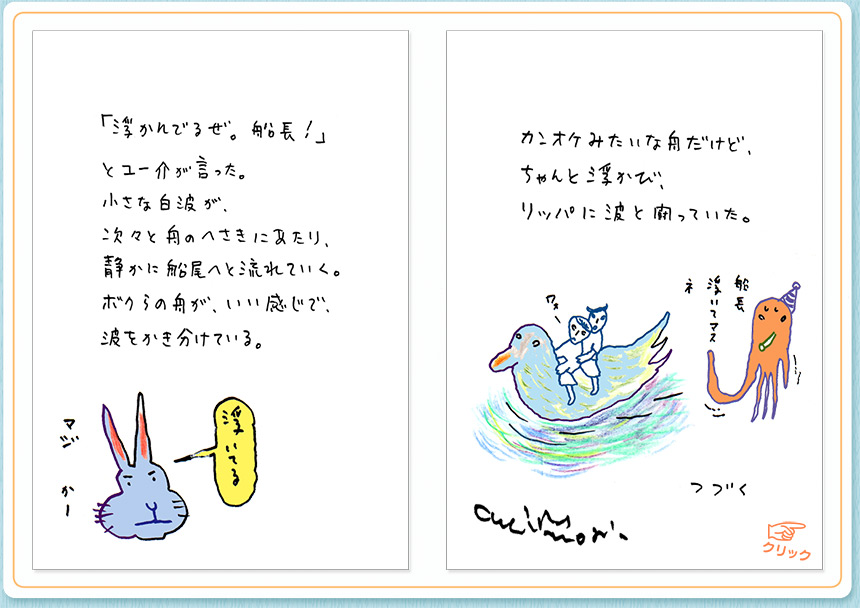 「浮かんでるぜ。船長!」
とユー介が言った。
小さな白波が、
次々と舟のへさきにあたり、
静かに船尾へと流れていく。
ボクらの舟が、いい感じで、
波をかき分けている。
マジ
かー
浮いてる
カンオケみたいな舟だけど、
ちゃんと浮かび、
リッパに波と闘っていた。
船長
浮いてマス
ネ
ワォー
つづく
クリック